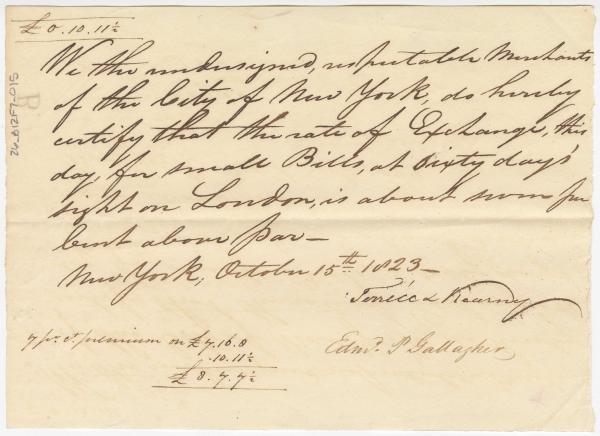 £ 0.10.11½
We the undersigned, respectable Merchants
of the City of New York, do hereby
certify that the rate of Exchange, this
day, for small Bills, at Sixty day's
sight on London, is about seven per
Cent above par—
New York, October 15th 1823—
& Kearny
Edmd. P Gallagher
7 pr. ct. premium on £7.16.8
.10.11½
£ 8.7.7½
26-B12F7-015